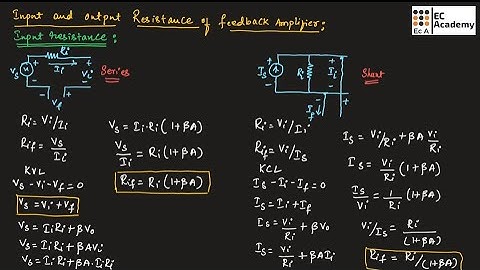 Input and output Resistance of feedback Amplifier:
EC Academy
Ec A
Input resistance:
Ri
+
+
Vs
Ii
Vi
-
-
Vf
Series
Ri = Vi/Ii
Rif = Vs/Ii
KVL
Vs - Vi - Vf = 0
Vs = Vi + Vf
Vs = IiRi + βVo
Vs = IiRi + βAVi
Vs = IiRi + βA.IiRi
Vs = Ii.Ri (1+βA)
Vs/Ii = Ri (1+βA)
Rif = Ri (1+βA)
Is
Ri
+
Ii
-
If
Shunt
Ri = Vi/Ii
Rif = Vi/Is
KCL
Is - Ii - If = 0
Is = Ii + If
Is = Vi/Ri + βVo
Is = Vi/Ri + βAIi
Is = Vi/Ri + βA Vi/Ri
Is = Vi/Ri (1+βA)
Is/Vi = 1/Ri (1+βA)
Vi/Is = Ri/(1+βA)
Rif = Ri/(1+βA)